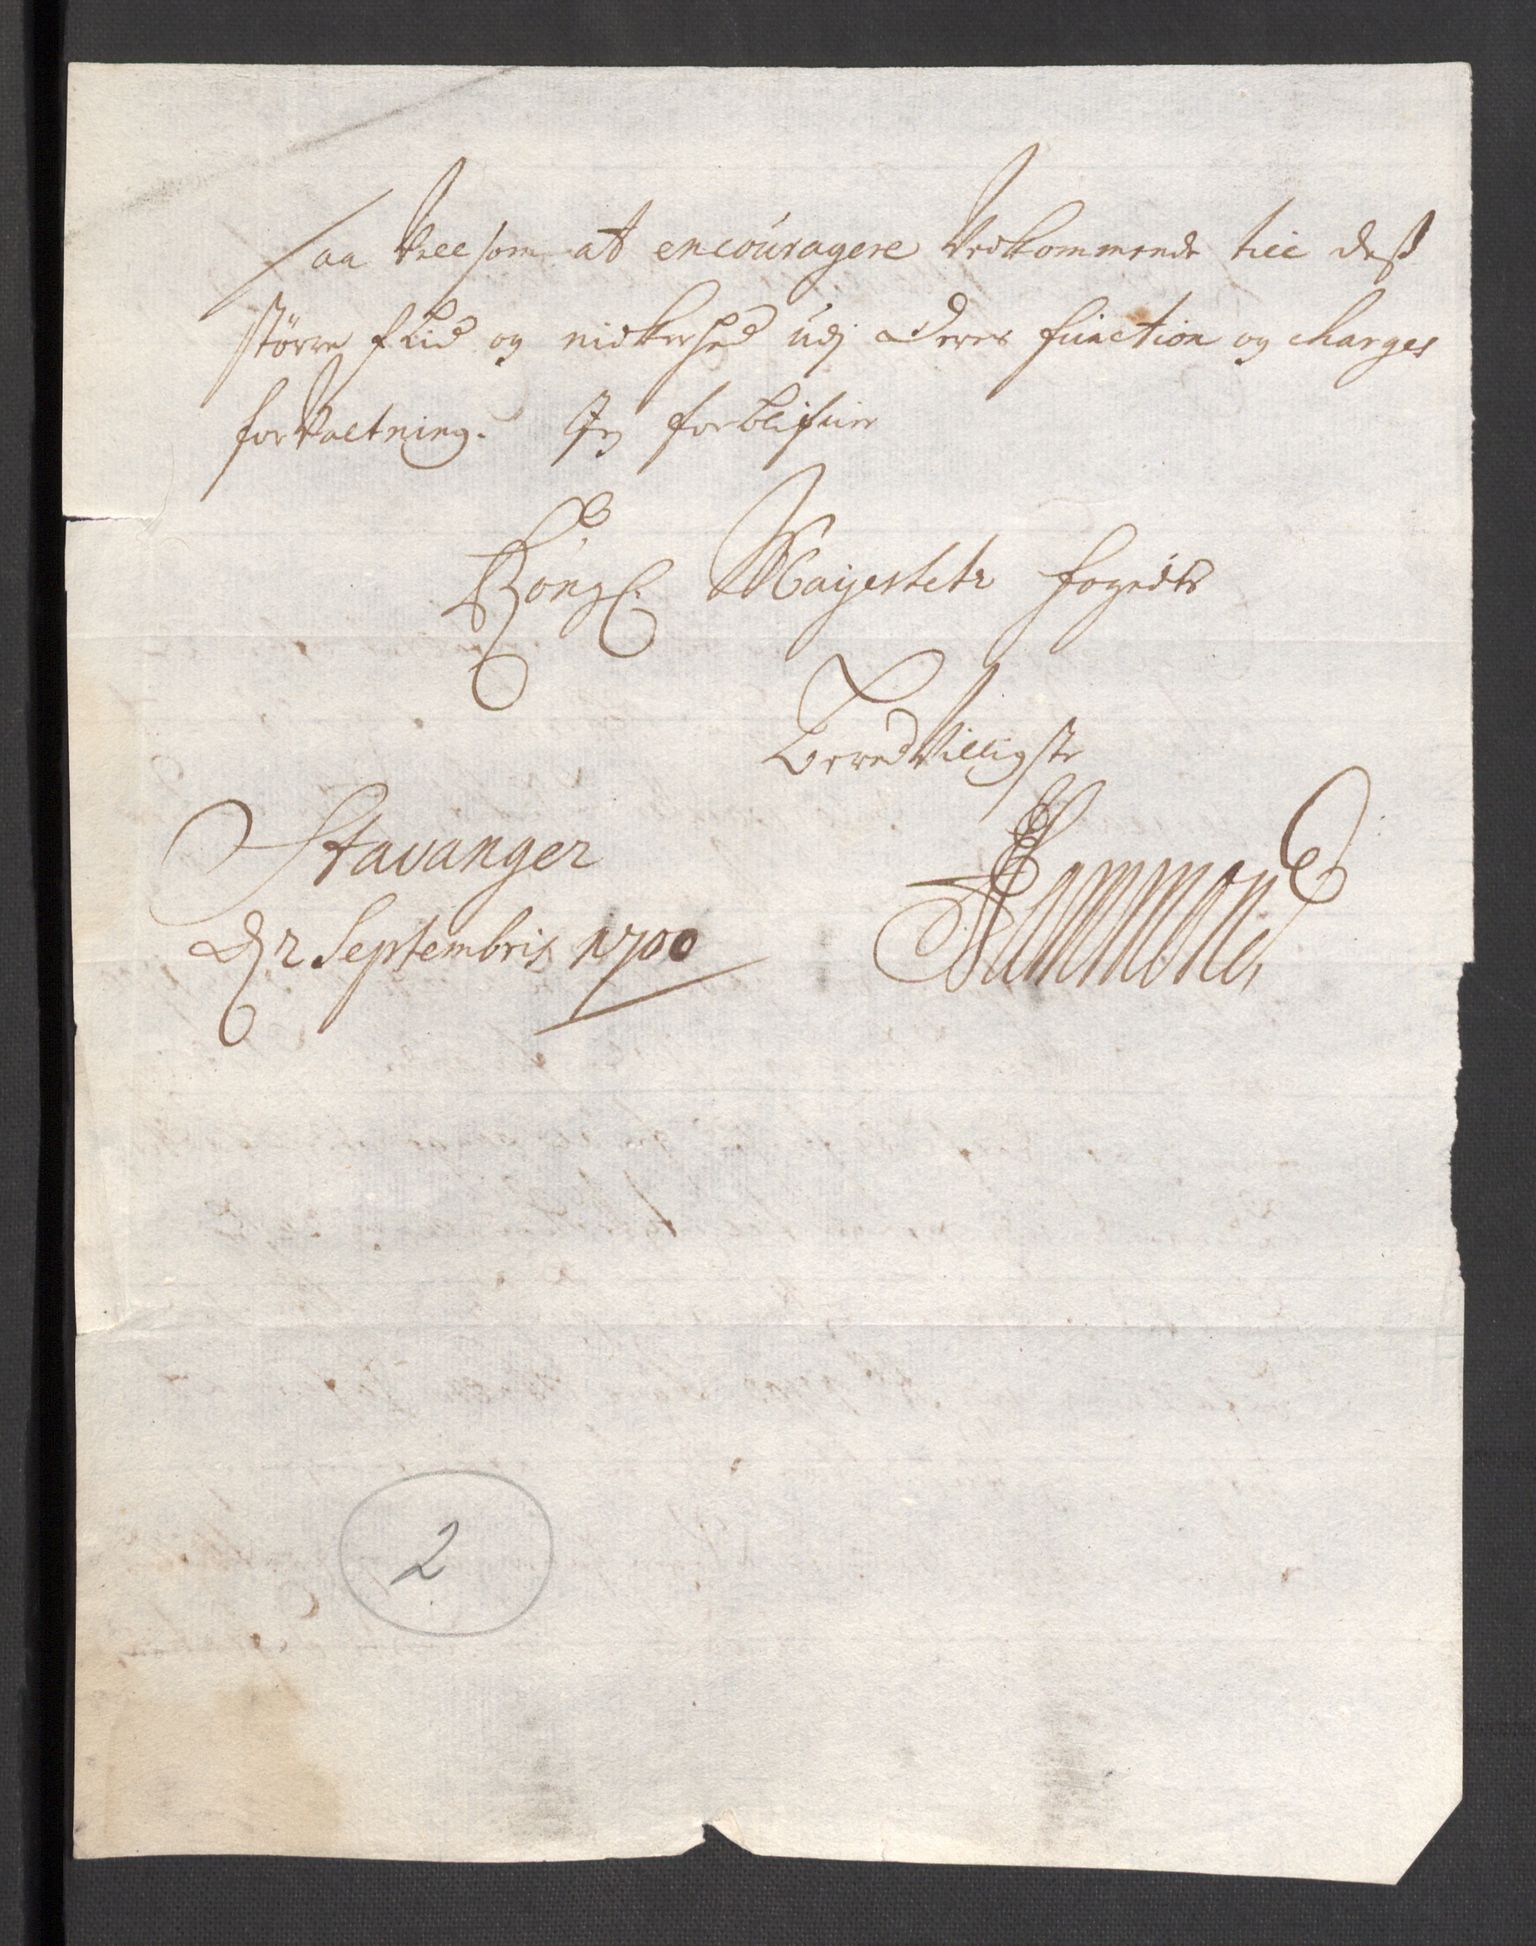 saa vell som at encouragere Vedkommende till deß
større flid og nidkerhed udj deres function og charges
forvaltning. Jeg forblifuer
Kongl. Mayestetz fogedts
beredvilligste
Stavanger
d 2 Septembris 1700
Hammond
2